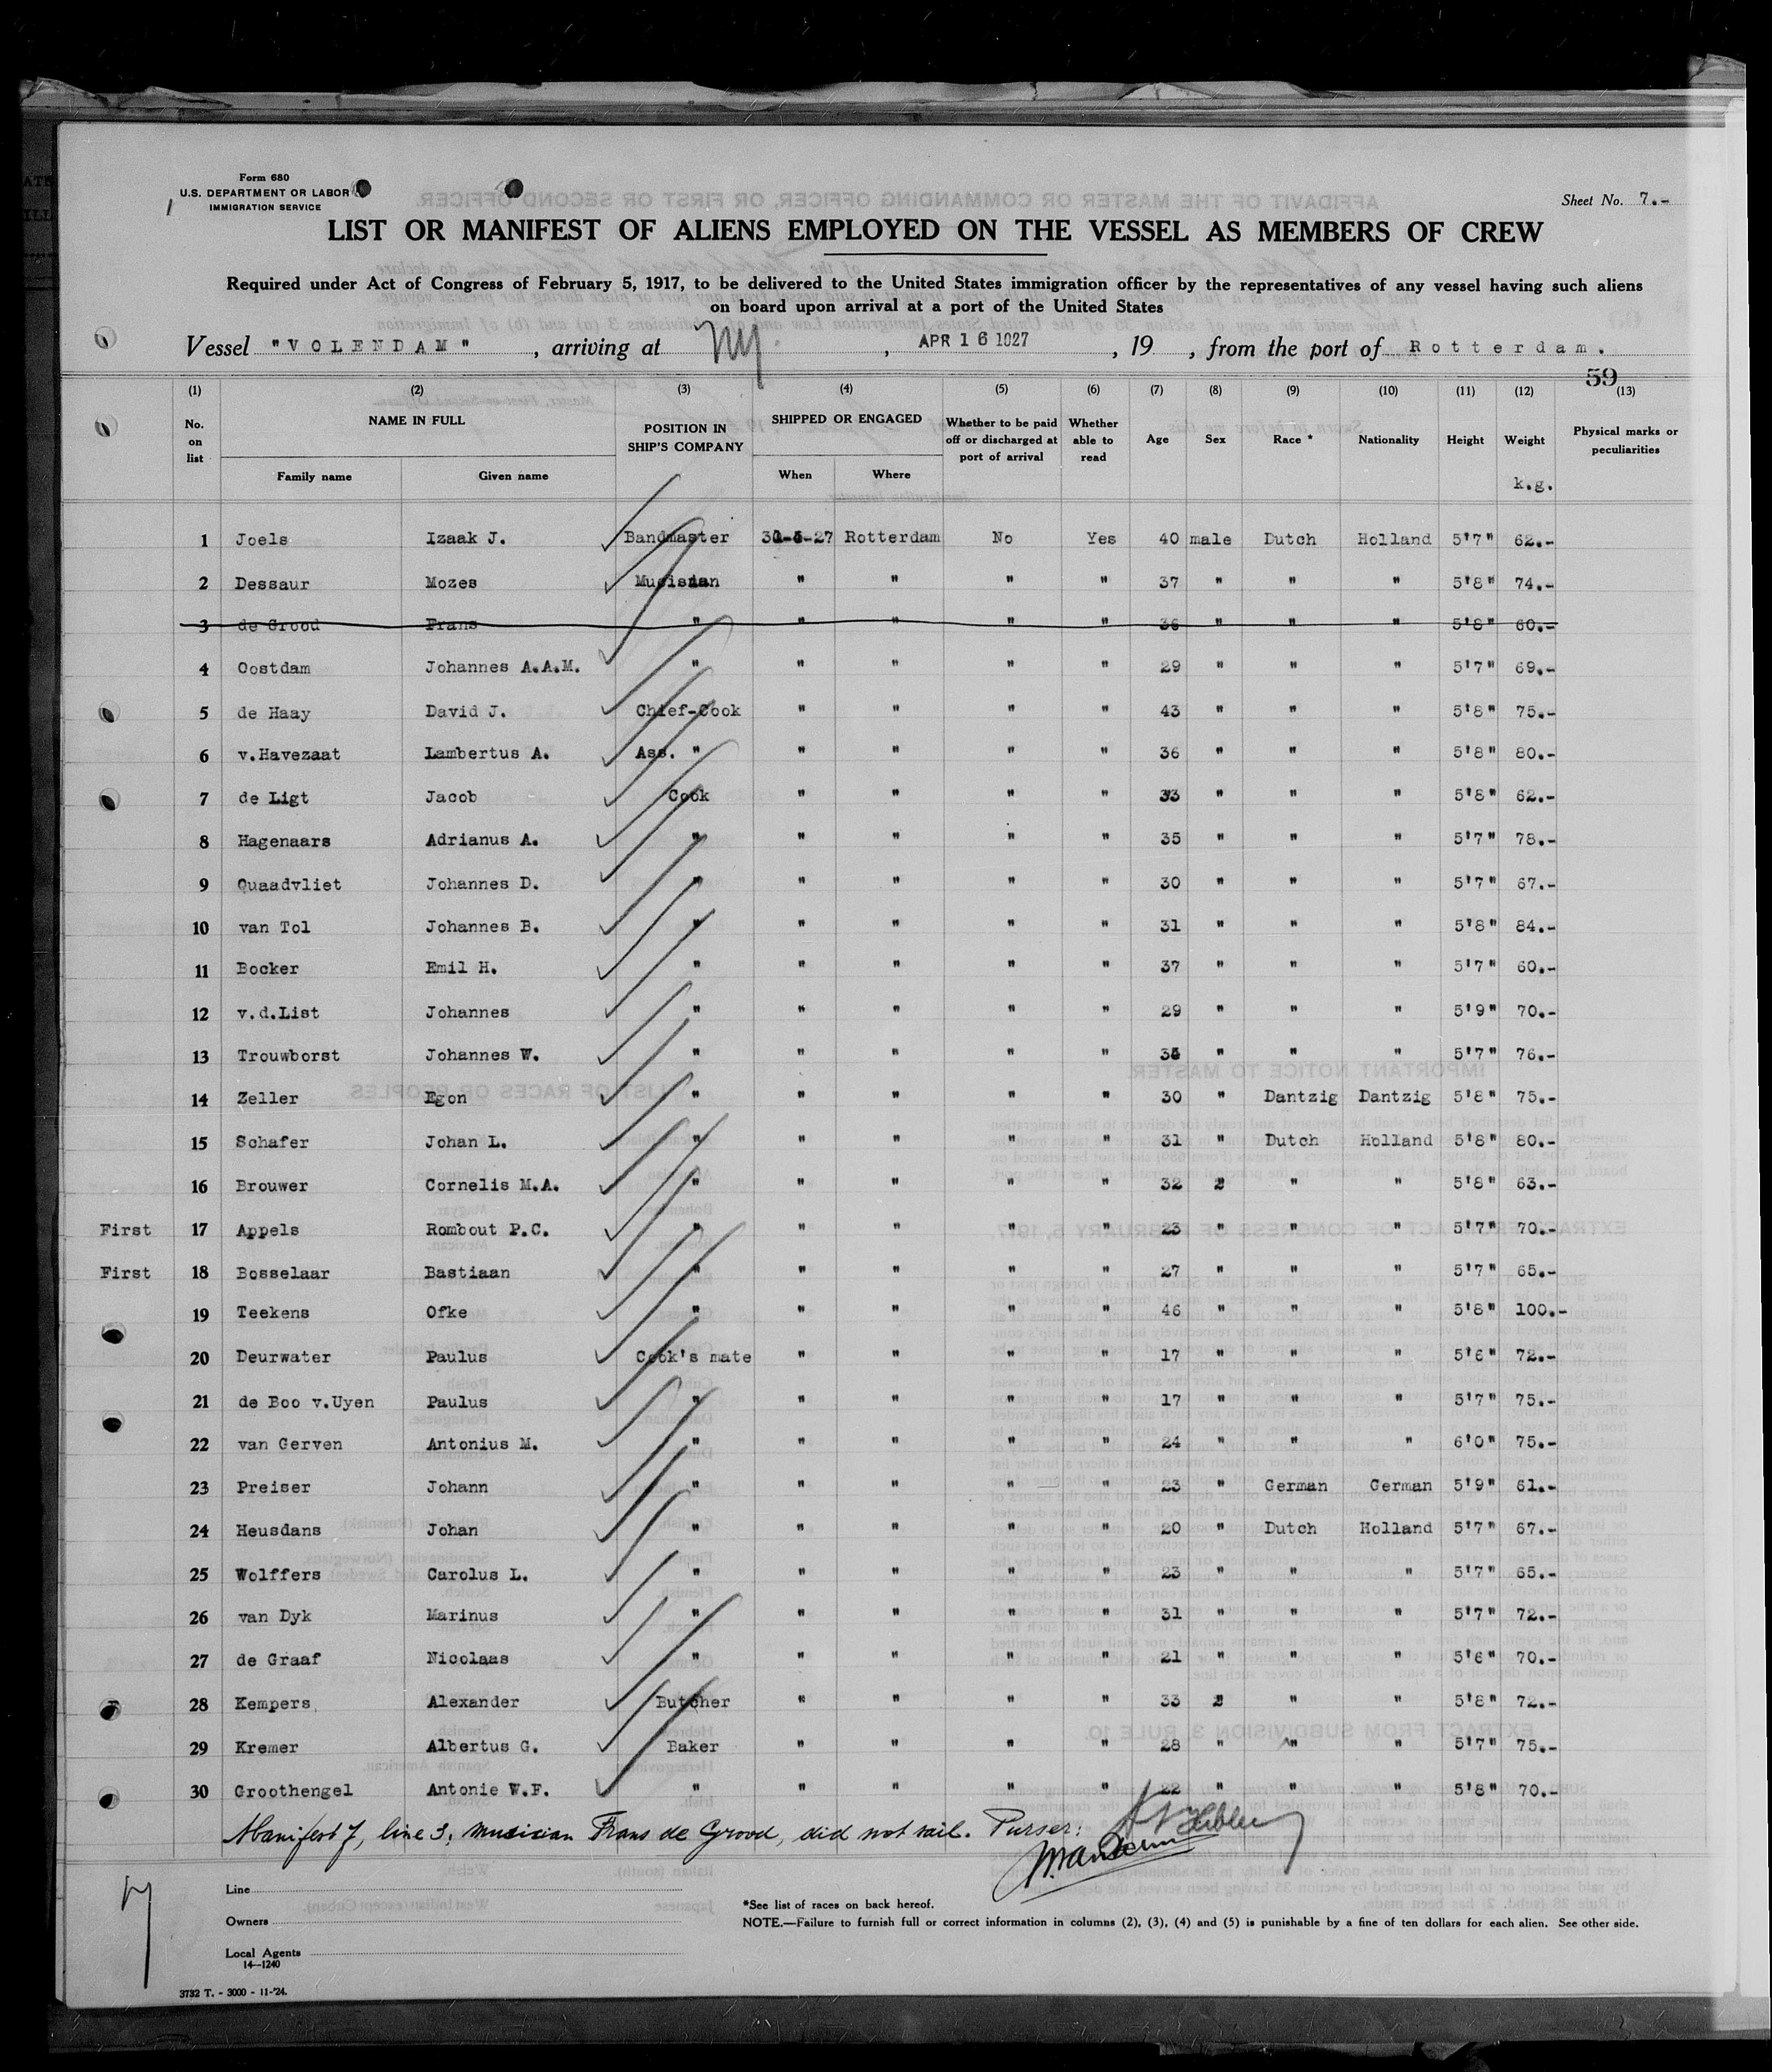 Form 680
U.S. DEPARTMENT OR LABOR
IMMIGRATION SERVICE
Sheet No. 7.-
LIST OR MANIFEST OF ALIENS EMPLOYED ON THE VESSEL AS MEMBERS OF CREW
Required under Act of Congress of February 5, 1917, to be delivered to the United States immigration officer by the representatives of any vessel having such aliens
on board upon arrival at a port of the United States
Vessel "VOLENDAM", arriving at NY., APR 16 1927, 19 , from the port of Rotterdam.
59
(1) (2) (3) (4) (5) (6) (7) (8) (9) (10) (11) (12) (13)
No. on list NAME IN FULL POSITION IN SHIP'S COMPANY SHIPPED OR ENGAGED Whether to be paid off or discharged at port of arrival Whether able to read Age Sex Race * Nationality Height Weight Physical marks or peculiarities
Family name Given name When Where k.g.
1 Joels Izaak J. Bandmaster Rotterdam No Yes 40 male Dutch Holland 5'7" 62.-
2 Dessaur Mozes Musician " " " " 37 " " " 5'8" 74.-
3 de Grood Frans " " " " " 36 " " " 5'8" 60.-
4 Oostdam Johannes A.A.M. " " " " " 29 " " " 5'7" 69.-
5 de Haay David J. Chief-Cook " " " " 43 " " " 5'8" 75.-
6 v.Havezaat Lambertus A. Ass. " " " " " 36 " " " 5'8" 80.-
7 de Ligt Jacob Cook " " " " 33 " " " 5'8" 62.-
8 Hagenaars Adrianus A. " " " " " 35 " " " 5'7" 78.-
9 Quaadvliet Johannes D. " " " " " 30 " " " 5'7" 67.-
10 van Tol Johannes B. " " " " " 31 " " " 5'8" 84.-
11 Bocker Emil H. " " " " " 37 " " " 5'7" 60.-
12 v.d.List Johannes " " " " " 29 " " " 5'9" 70.-
13 Trouwborst Johannes W. " " " " " " " " 5'7" 76.-
14 Zeller Egon " " " " " 30 " Dantzig Dantzig 5'8" 75.-
15 Schafer Johan L. " " " " " 31 " Dutch Holland 5'8" 80.-
16 Brouwer Cornelis M.A. " " " " " 32 2 " " 5'8" 63.-
First 17 Appels Rombout P.C. " " " " " 23 " " " 5'7" 70.-
First 18 Bosselaar Bastiaan " " " " " 27 " " " 5'7" 65.-
19 Teekens Ofke " " " " " 46 " " " 5'8" 100.-
20 Deurwater Paulus Cook's mate " " " " 17 " " " 5'6" 72.-
21 de Boo v.Uyen Paulus " " " " " 17 " " " 5'7" 75.-
22 van Gerven Antonius M. " " " " " 24 " " " 6'0" 75.-
23 Preiser Johann " " " " " 23 " German German 5'9" 61.-
24 Heusdans Johan " " " " " 20 " Dutch Holland 5'7" 67.-
25 Wolffers Carolus L. " " " " " 23 " " " 5'7" 65.-
26 van Dyk Marinus " " " " " 31 " " " 5'7" 72.-
27 de Graaf Nicolaas " " " " " 21 " " " 5'6" 70.-
28 Kempers Alexander Butcher " " " " 33 2 " " 5'8" 72.-
29 Kremer Albertus G. Baker " " " " 28 " " " 5'7" 75.-
30 Groothengel Antonie W.F. " " " " " 22 " " " 5'8" 70.-
Manifest 7, line 3, musician Frans de Grood, did not sail. Purser:
Line
Owners
Local Agents
14—1240
*See list of races on back hereof.
NOTE.—Failure to furnish full or correct information in columns (2), (3), (4) and (5) is punishable by a fine of ten dollars for each alien. See other side.
3732 T. - 3000 - 11-'24.